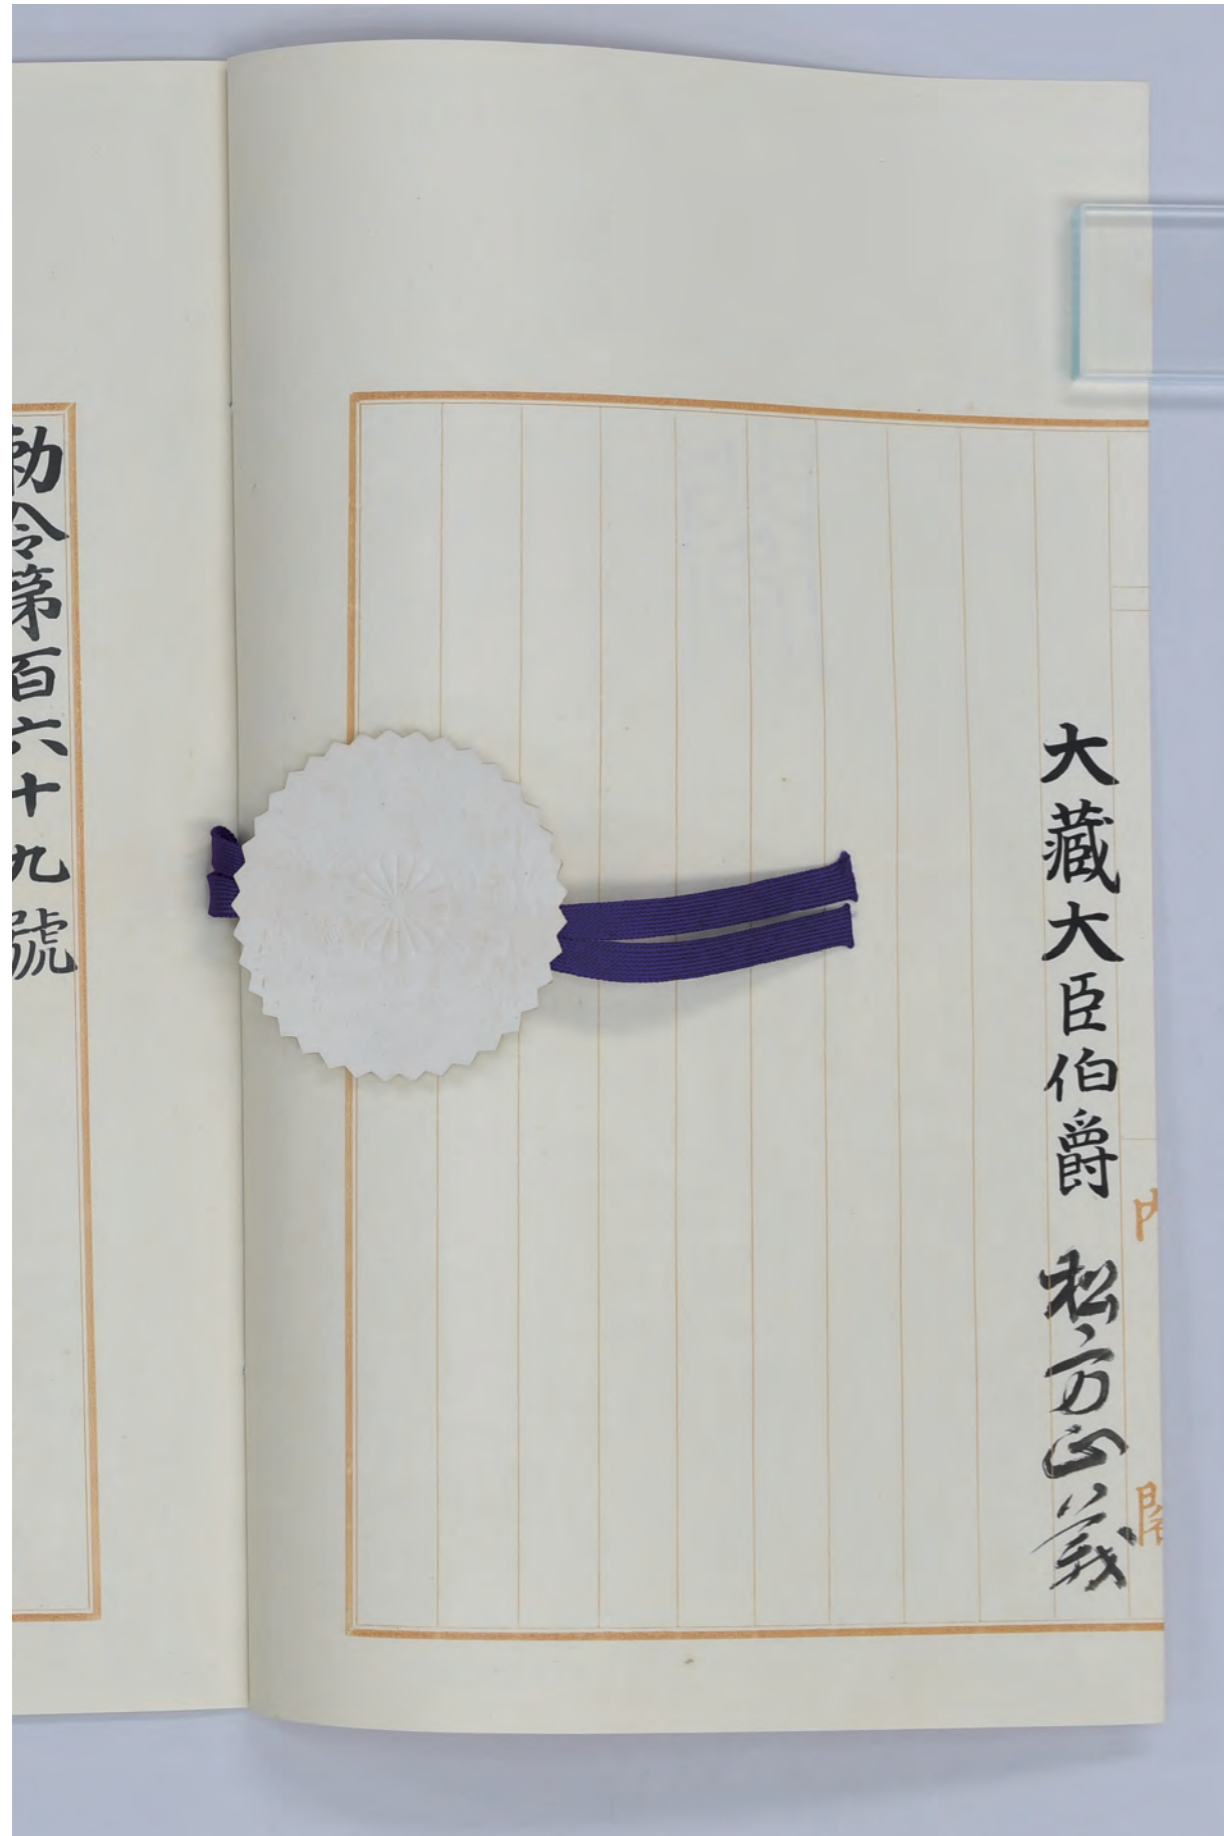 内閣
大藏大臣伯爵 松方正義
勅令第百六十九號